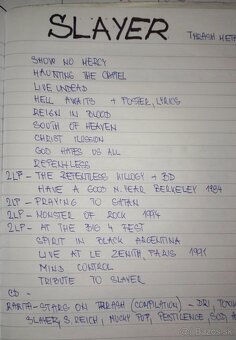 SLAYER
THRASH META
SHOW NO MERCY
HAUNTING THE CHAPEL
LIVE UNDEAD
HELL AWAITS + POSTER, LYRICS
REIGN IN BLOOD
SOUTH OF HEAVEN
CHRIST ILUSION
GOD HATES US ALL
REPENTLESS
2LP - THE REPENTLESS KILLOGY + BD
HAVE A GOOD N.YEAR BERKELEY 1984
2LP - PRAYING TO SATAN
2LP - MONSTER OF ROCK 1994
2LP - AT THE BIG 4 FEST
SPIRIT IN BLACK ARGENTINA
LIVE AT LE ZENITH, PARIS 1991
MIND CONTROL
TRIBUTE TO SLAYER
CD -
RARITA - STARS ON THRASH (COMPILATION) - DRI,
SLAYER, S. REICH, MUCKY PUP, PESTILENCE, SOD,
bazos.sk